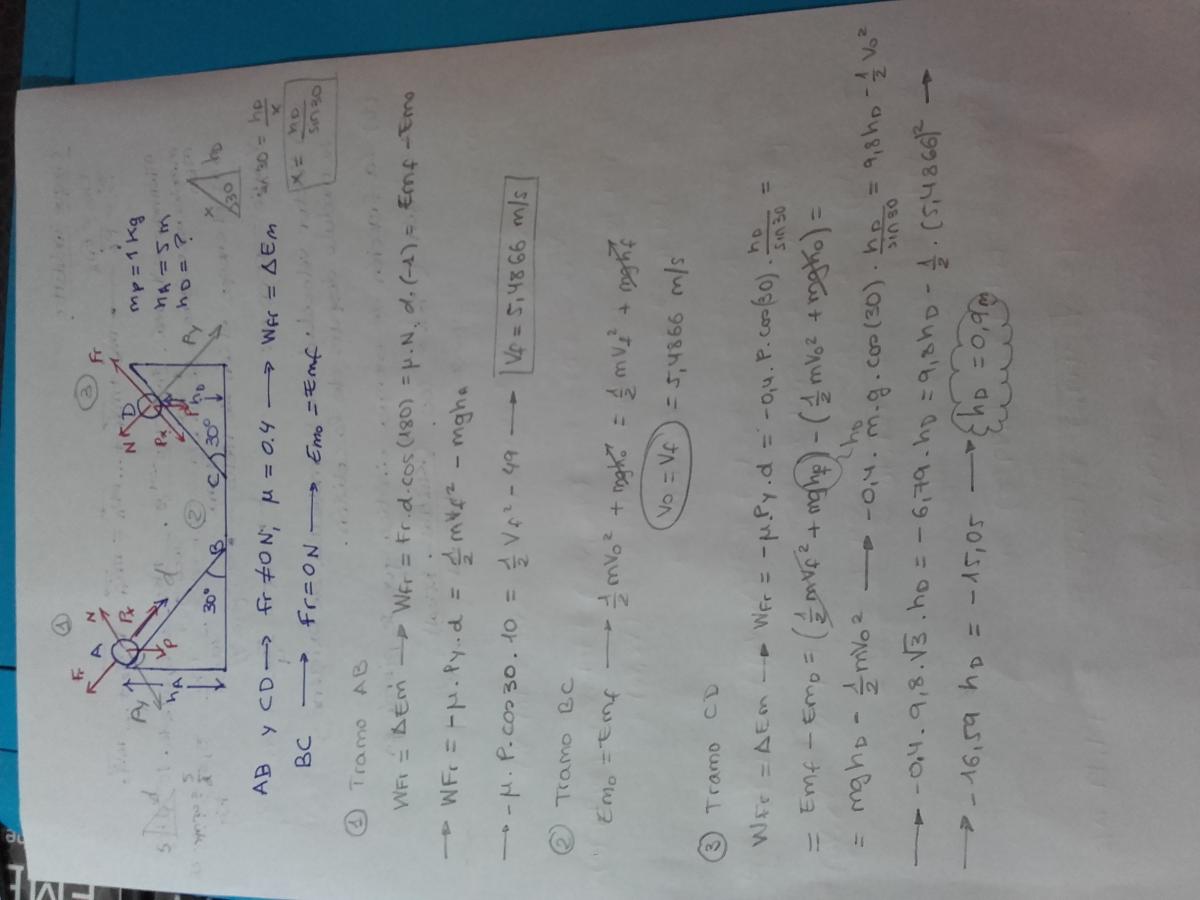 ① ③
Fr A N Px d Py P hA 30° B ② C 30° D N Fr Px P hD Py
mp = 1 Kg
hA = 5 m
hD = ?
x 30 hD
sin 30 = hD/x
x = hD/sin30
AB y CD → Fr ≠ 0 N; μ = 0.4 → WFr = ΔEm
BC → Fr = 0 N → Em0 = Emf.
① Tramo AB
WFr = ΔEm → WFr = Fr.d.cos(180) = μ.N.d.(-1) = Emf - Em0
→ WFr = -μ.Py.d = 1/2 mVf² - mghA
→ -μ.P.cos30.10 = 1/2 Vf² - 49 → Vf = 5,4866 m/s
② Tramo BC
Em0 = Emf → 1/2 mV0² + mgh0 = 1/2 mVf² + mghf
V0 = Vf = 5,4866 m/s
③ Tramo CD
WFr = ΔEm → WFr = -μ.Py.d = -0,4.P.cos(30).hD/sin30 =
= Emf - Em0 = (1/2 mVf² + mghf) - (1/2 mV0² + mgh0) =
hD
= mghD - 1/2 mV0² → -0,4.m.g.cos(30).hD/sin30 = 9,8hD - 1/2 V0²
→ -0,4.9,8.√3.hD = -6,79.hD = 9,8hD - 1/2.(5,4866)² →
→ -16,59 hD = -15,05 → hD = 0,9m